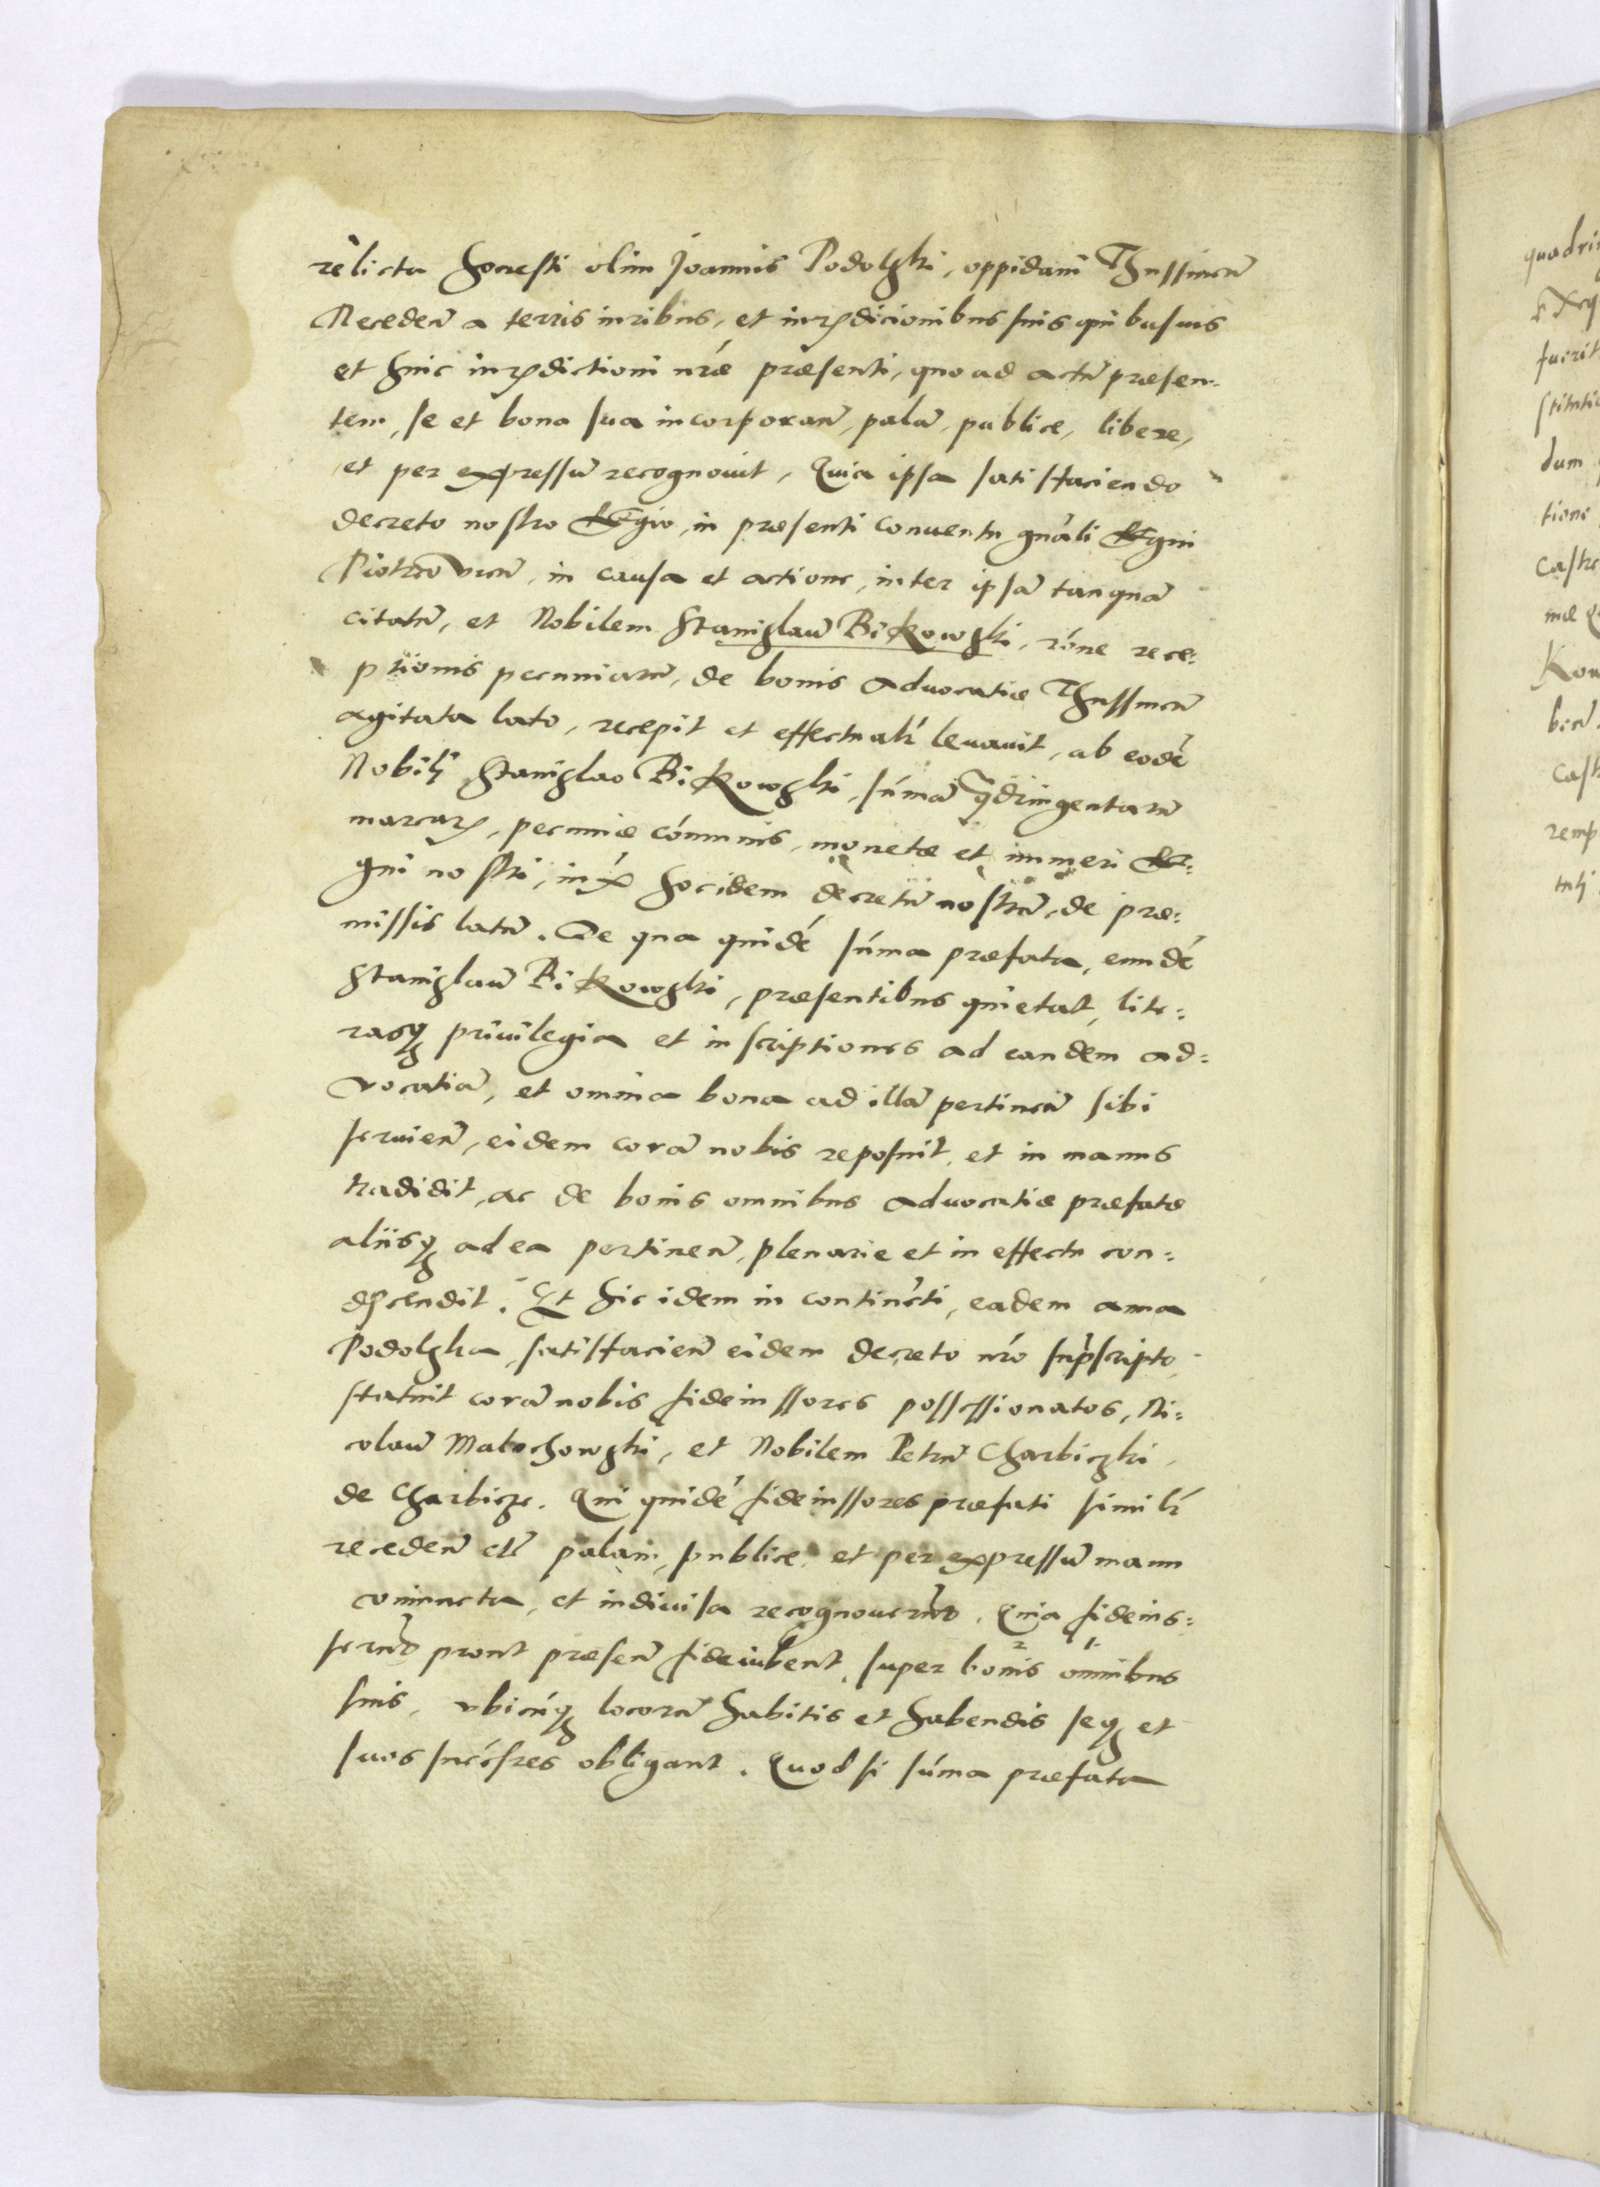 relicta honesti olim Joannis Podolski, oppidani Thussinen̄
Receden̄ a terris iuribus, et iurꝫdicionibus suis quibusuis
et huic iurꝫdictioni nr̄æ præsenti, quo ad actū præsen-
tem, se et bona sua incorporan̄, palā, publice, libere,
et per expressū recognouit, Quia ipsa satisfaciendo
decreto nostro Regio, in præsenti conuentu gnāli Regni
Piotrcouien̄, in causa et actione, inter ipsā tanquā
citatā, et Nobilem Stanislaū Bikowski, rōne rece-
ptionis pecuniarū, de bonis aduocatiæ Thussinen̄
agitata lato, recepit et effectualr̄ leuauit, ab eodē
Nobili Stanislao Bikowski, sūmā qꝫdringentarū
marcarꝫ, pecuniæ cōmunis, monetæ et numeri Re-
gni nostri, iuxᵃ hocidem decretū nostrū, de præ-
missis latū. De qua quidē sūma præfata, eundē
Stanislaū Bikowski, præsentibus quietat, lite-
rasqꝫ priuilegia et inscriptiones ad eandem ad-
vocatiā, et omnia bona ad illā pertinen̄ sibi
seruien̄, eidem corā nobis reposuit, et in manus
tradidit, ac de bonis omnibus aduocatiæ præfatæ
aliisqꝫ ad ea pertinen̄, plenarie et in effectu con-
descendit. Et hic idem in continēti, eadem anna
Podolska, satisfacien̄ eidem decreto nr̄o suprᵃscripto
statuit corā nobis fideiussores possessionatos, Ni-
colaū Malochowski, et Nobilem Petrū Charbiczki
de Charbicze. Qui quidē fideiussores præfati similr̄
receden̄ etc̄ palam, publice et per expressū manu
coniuncta, et indiuisa recognouerūt. Quia fideius-
serūt prout præsen̄ fideiubent, super bonis omnibus
suis, vbicūqꝫ locorū habitis et habendis seqꝫ et
suos succ̄sores obligant. Quod si sūma præfata
quadrin
fuerit
dum
tione
castre
mæ
Kow